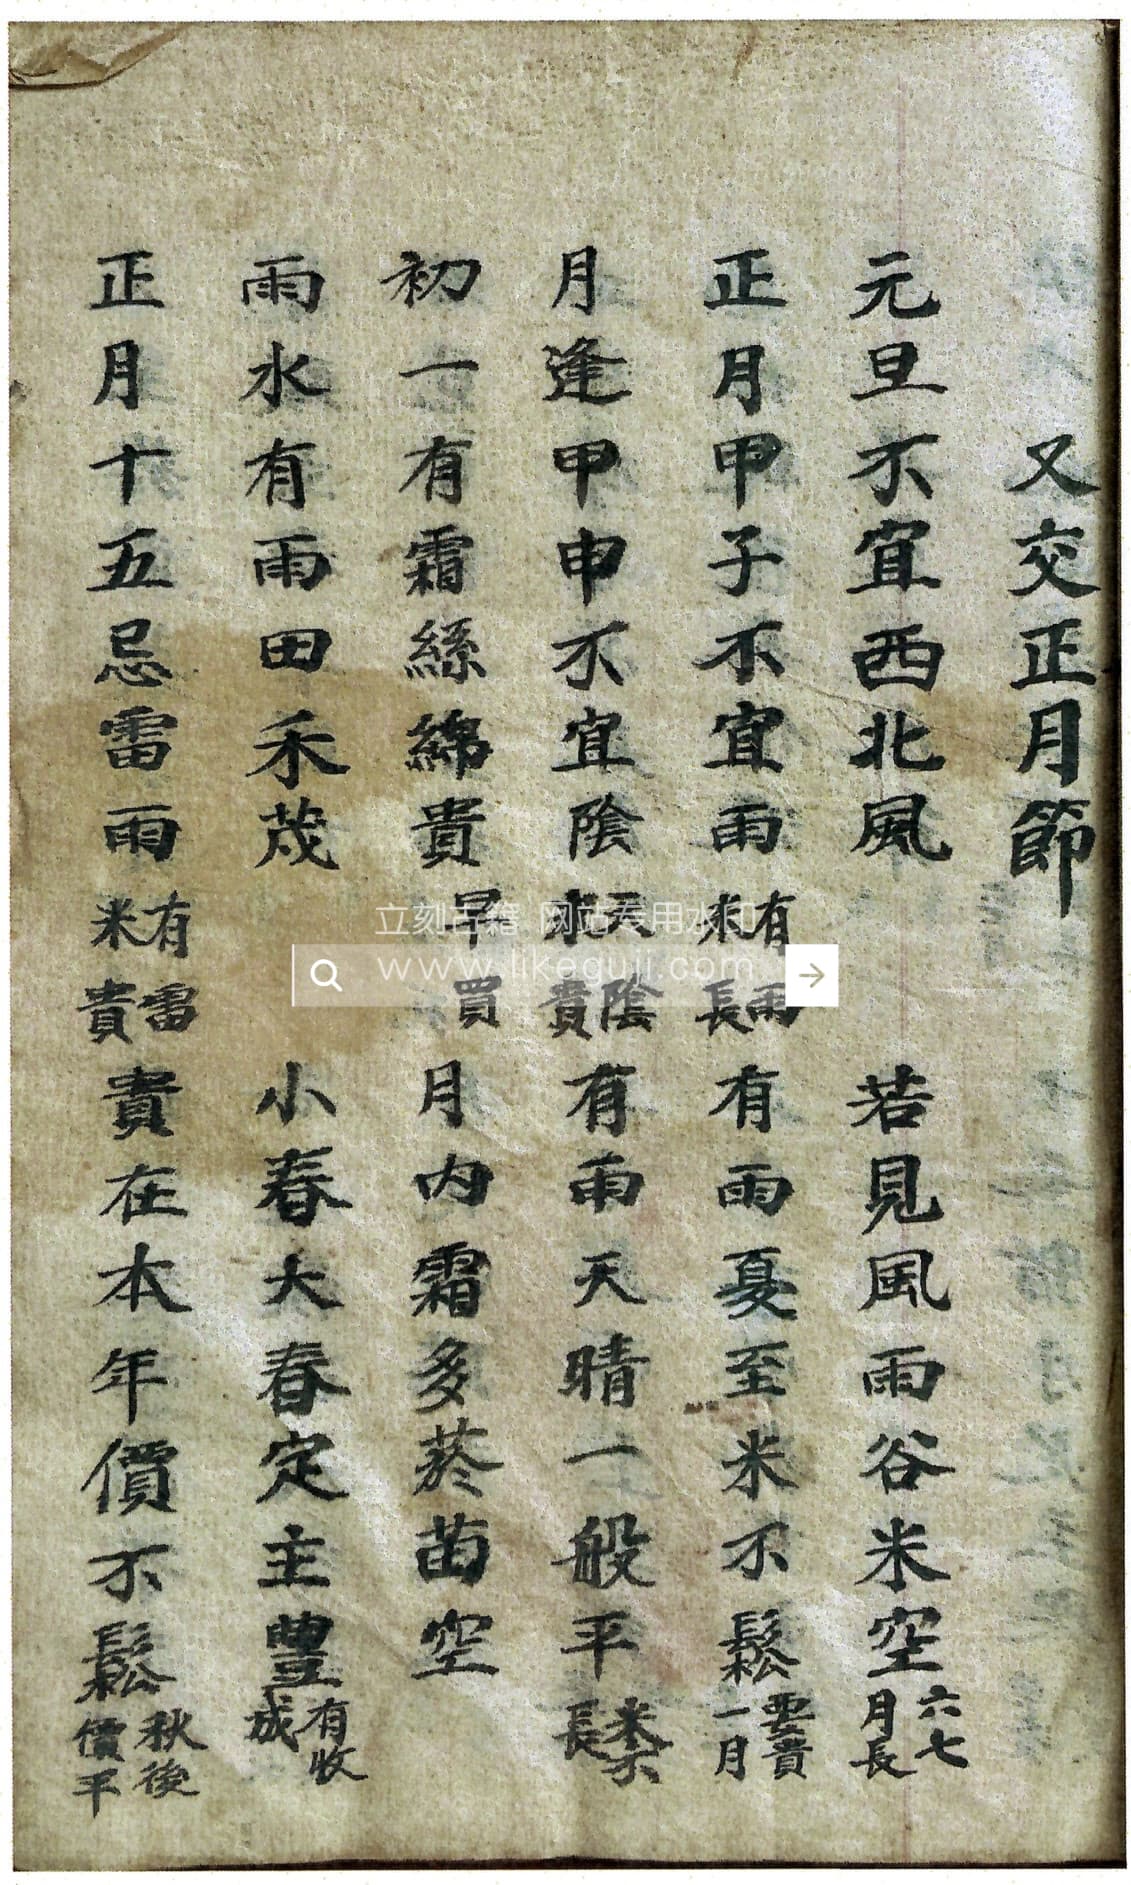 又交正月節
元旦不宜西北風 若見風雨谷米空六七月長
正月甲子不宜雨有雨米長有雨夏至米不鬆要貴一月
月逢甲申不宜陰天陰米貴有雨天晴一般平米不長
初一有霜絲綿貴早買月內霜多菸苗空
雨水有雨田禾茂 小春大春定主豊有收成
正月十五忌雷雨有雷米貴貴在本年價不鬆秋後價平
立刻古籍 网站专用水印
www.likeguji.com